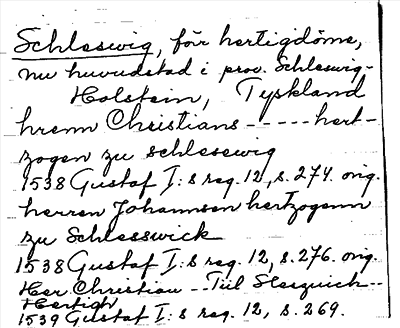 Schleswig, för hertigdöme,
nu huvudstad i prov. Schleswig-
Holstein, Tyskland
hrenn Christians ----- hert-
zogen zu schlesewig
1538 Gustaf I:s reg. 12, s. 274. orig.
herren Johannsen hertzogenn
zu Schlesswick
1538 Gustaf I:s reg. 12, s. 276. orig.
Her Christian -- Till Slesquick --
Hertigh
1539 Gustaf I:s reg. 12, s. 269.